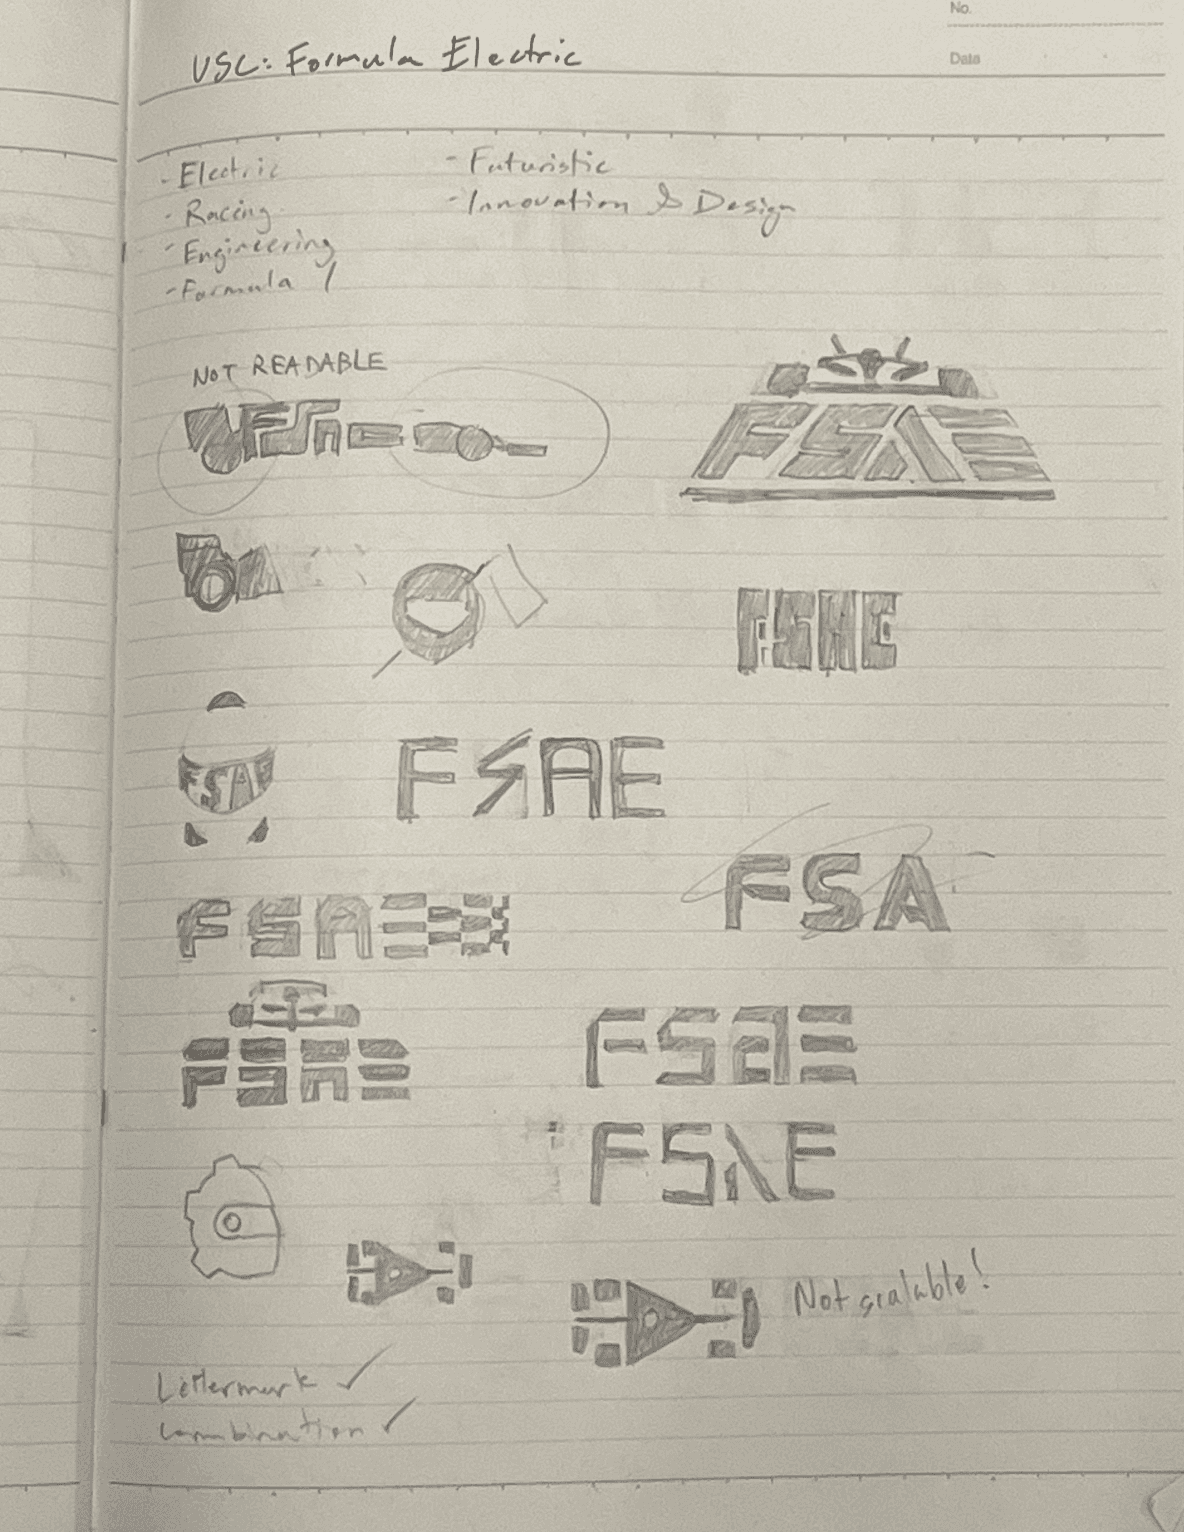 No.
USC: Formula Electric
Data
- Electric
- Racing
- Engineering
- Formula 1
- Futuristic
- Innovation & Design
NOT READABLE
FSAE
FSAE
FSAE
FSAE
FSAE
FSA
FSAE
FSAE
FSAE
FSAE
Not scalable!
Lettermark ✓
Combination ✓